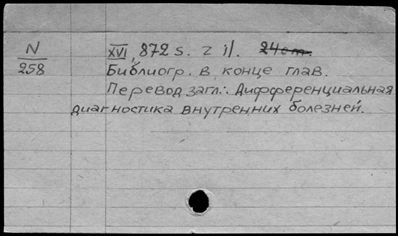 N XVI, 872 s. z il. 24 cm.
258 Библиогр. в конце глав.
Перевод загл.: Дифференциальная
диагностика внутренних болезней.